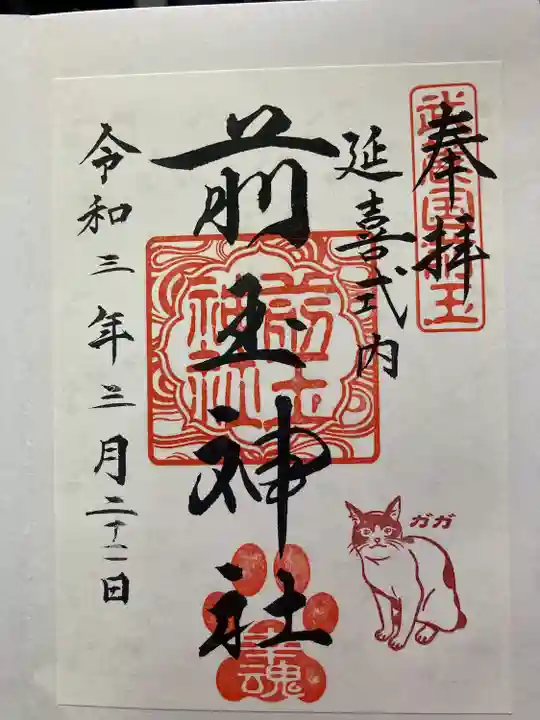 武蔵国埼玉
奉拝
延喜式内
前玉
神社
前玉神社
令和三年三月二十二日
ガガ
幸魂